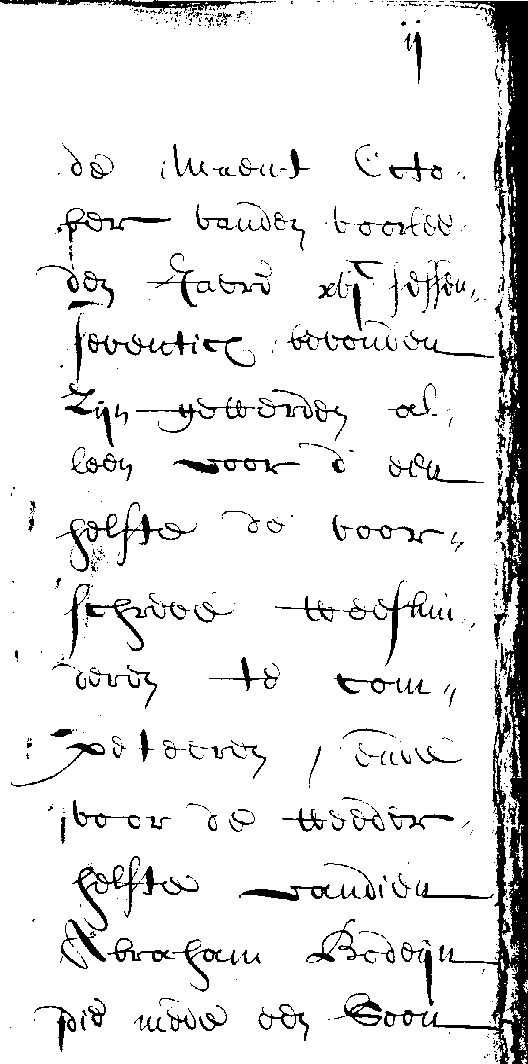 ij
de Maent Octo-
ber vanden voorlee-
den Jaere xvjc sessen-
seventich bevonden
zijn gewerden al-
leen voor d een
helfte de voor-
schreve weeskin-
deren te com-
peteeren, ende
voor de weder-
helfte vandien
Abraham Bodeijn
die mede een Soon